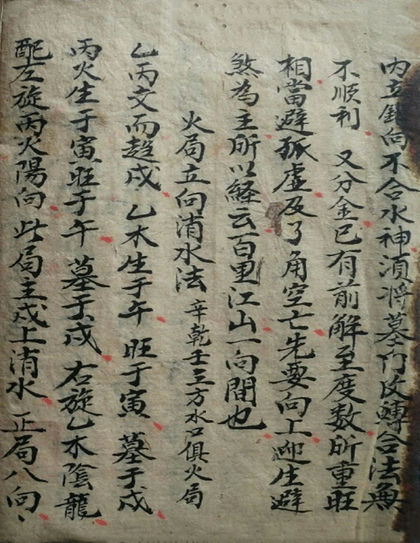 内立針向不合水神須将墓门反轉合法無
不順利 又分金已有前解至度數所重旺
相當避孤虚及了角空亡先要向上迎生避
煞為主所以経云百里江山一向間也
火局立向消水法 辛乾壬三方水口俱火局
乙丙交而趨戍 乙木生于午 旺于寅 墓于戍
丙火生于寅旺于午 墓于戍 右旋乙木陰龍
配左旋丙火陽向 此局主戍上消水 正局八向